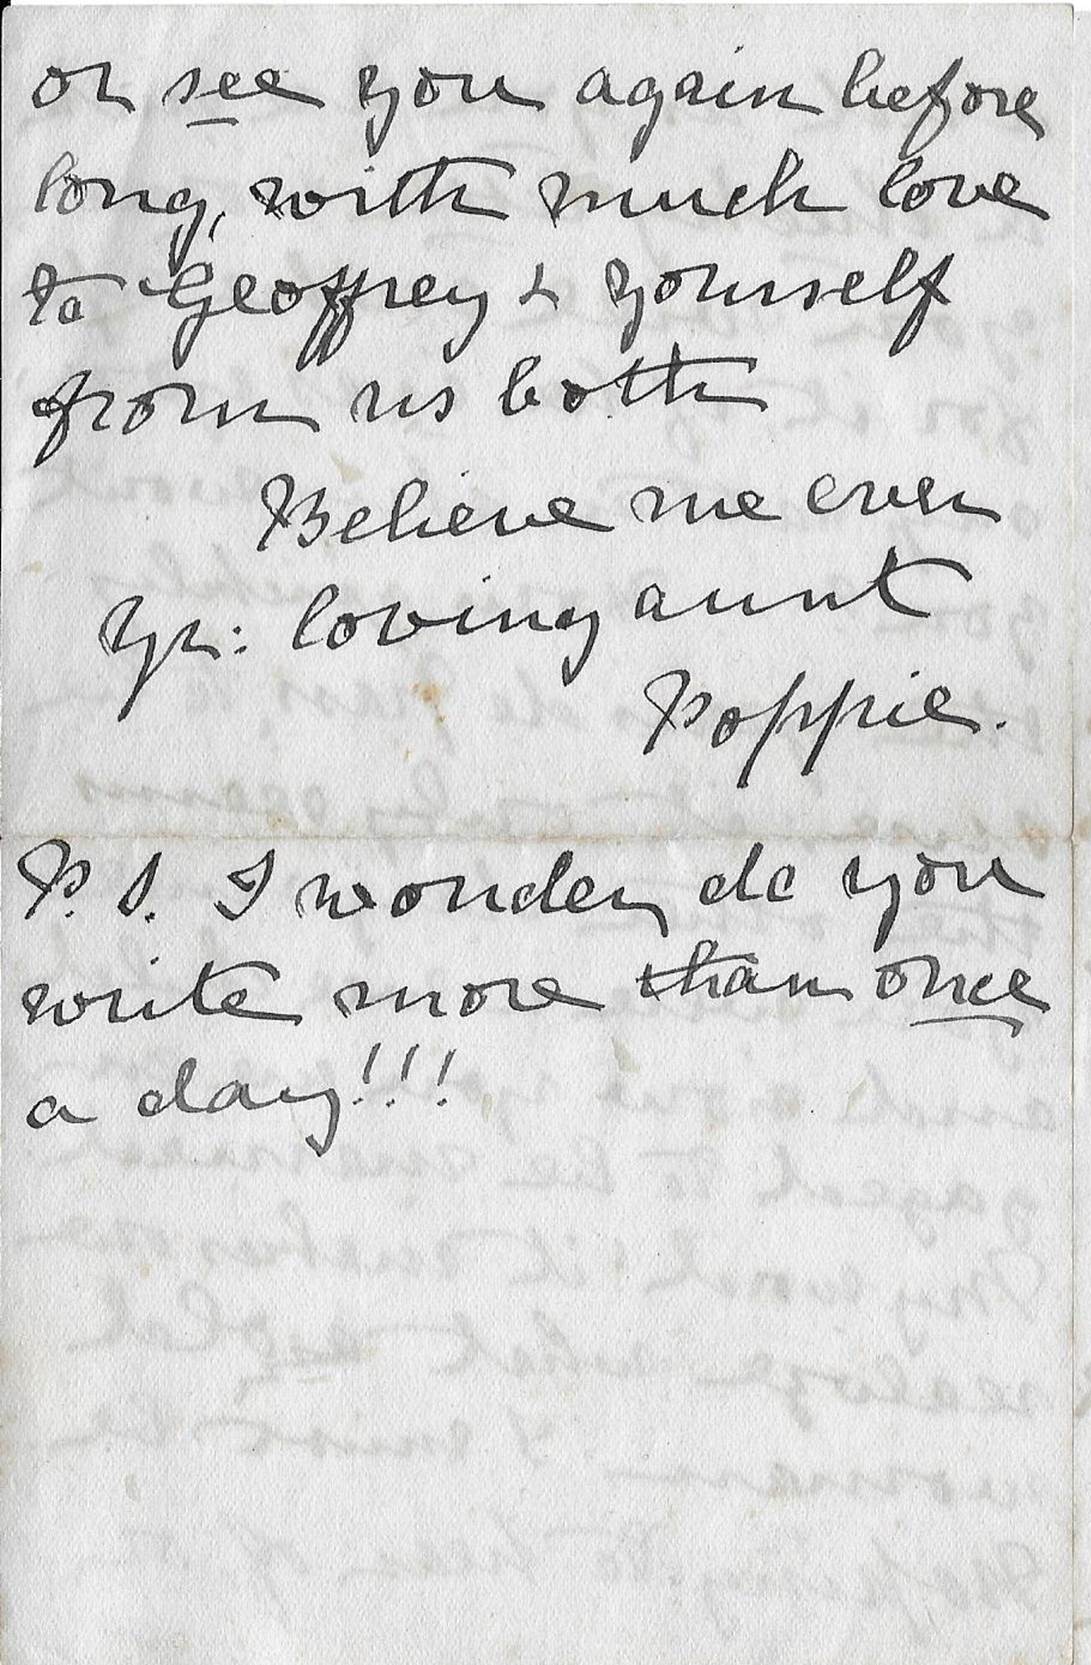 or see you again before
long, with much love
to Geoffrey & yourself
from us both
Believe me ever
Yr: loving aunt
Poppie.
P.S. I wonder, do you
write more than once
a day!!!